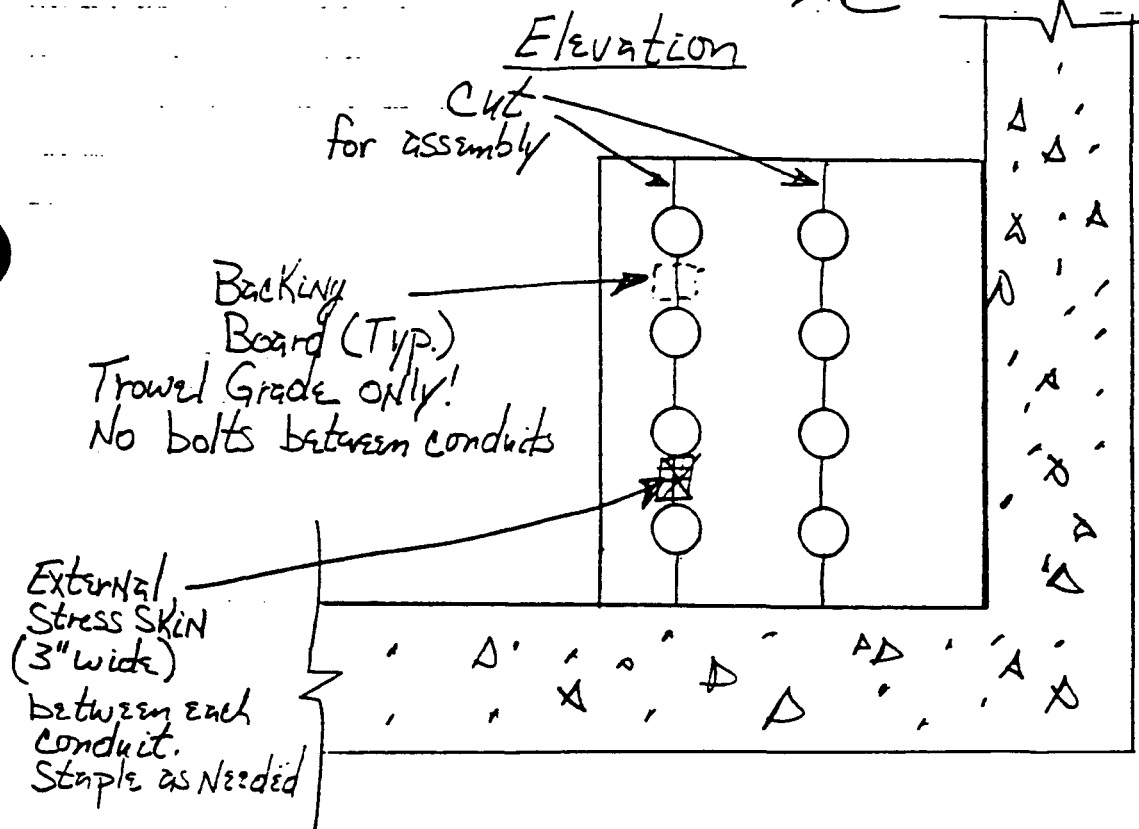 Elevation
Cut
for assembly
Backing
Board (Typ.)
Trowel Grade only!
No bolts between conduits
External
Stress Skin
(3" wide)
between each
conduit.
Staple as Needed